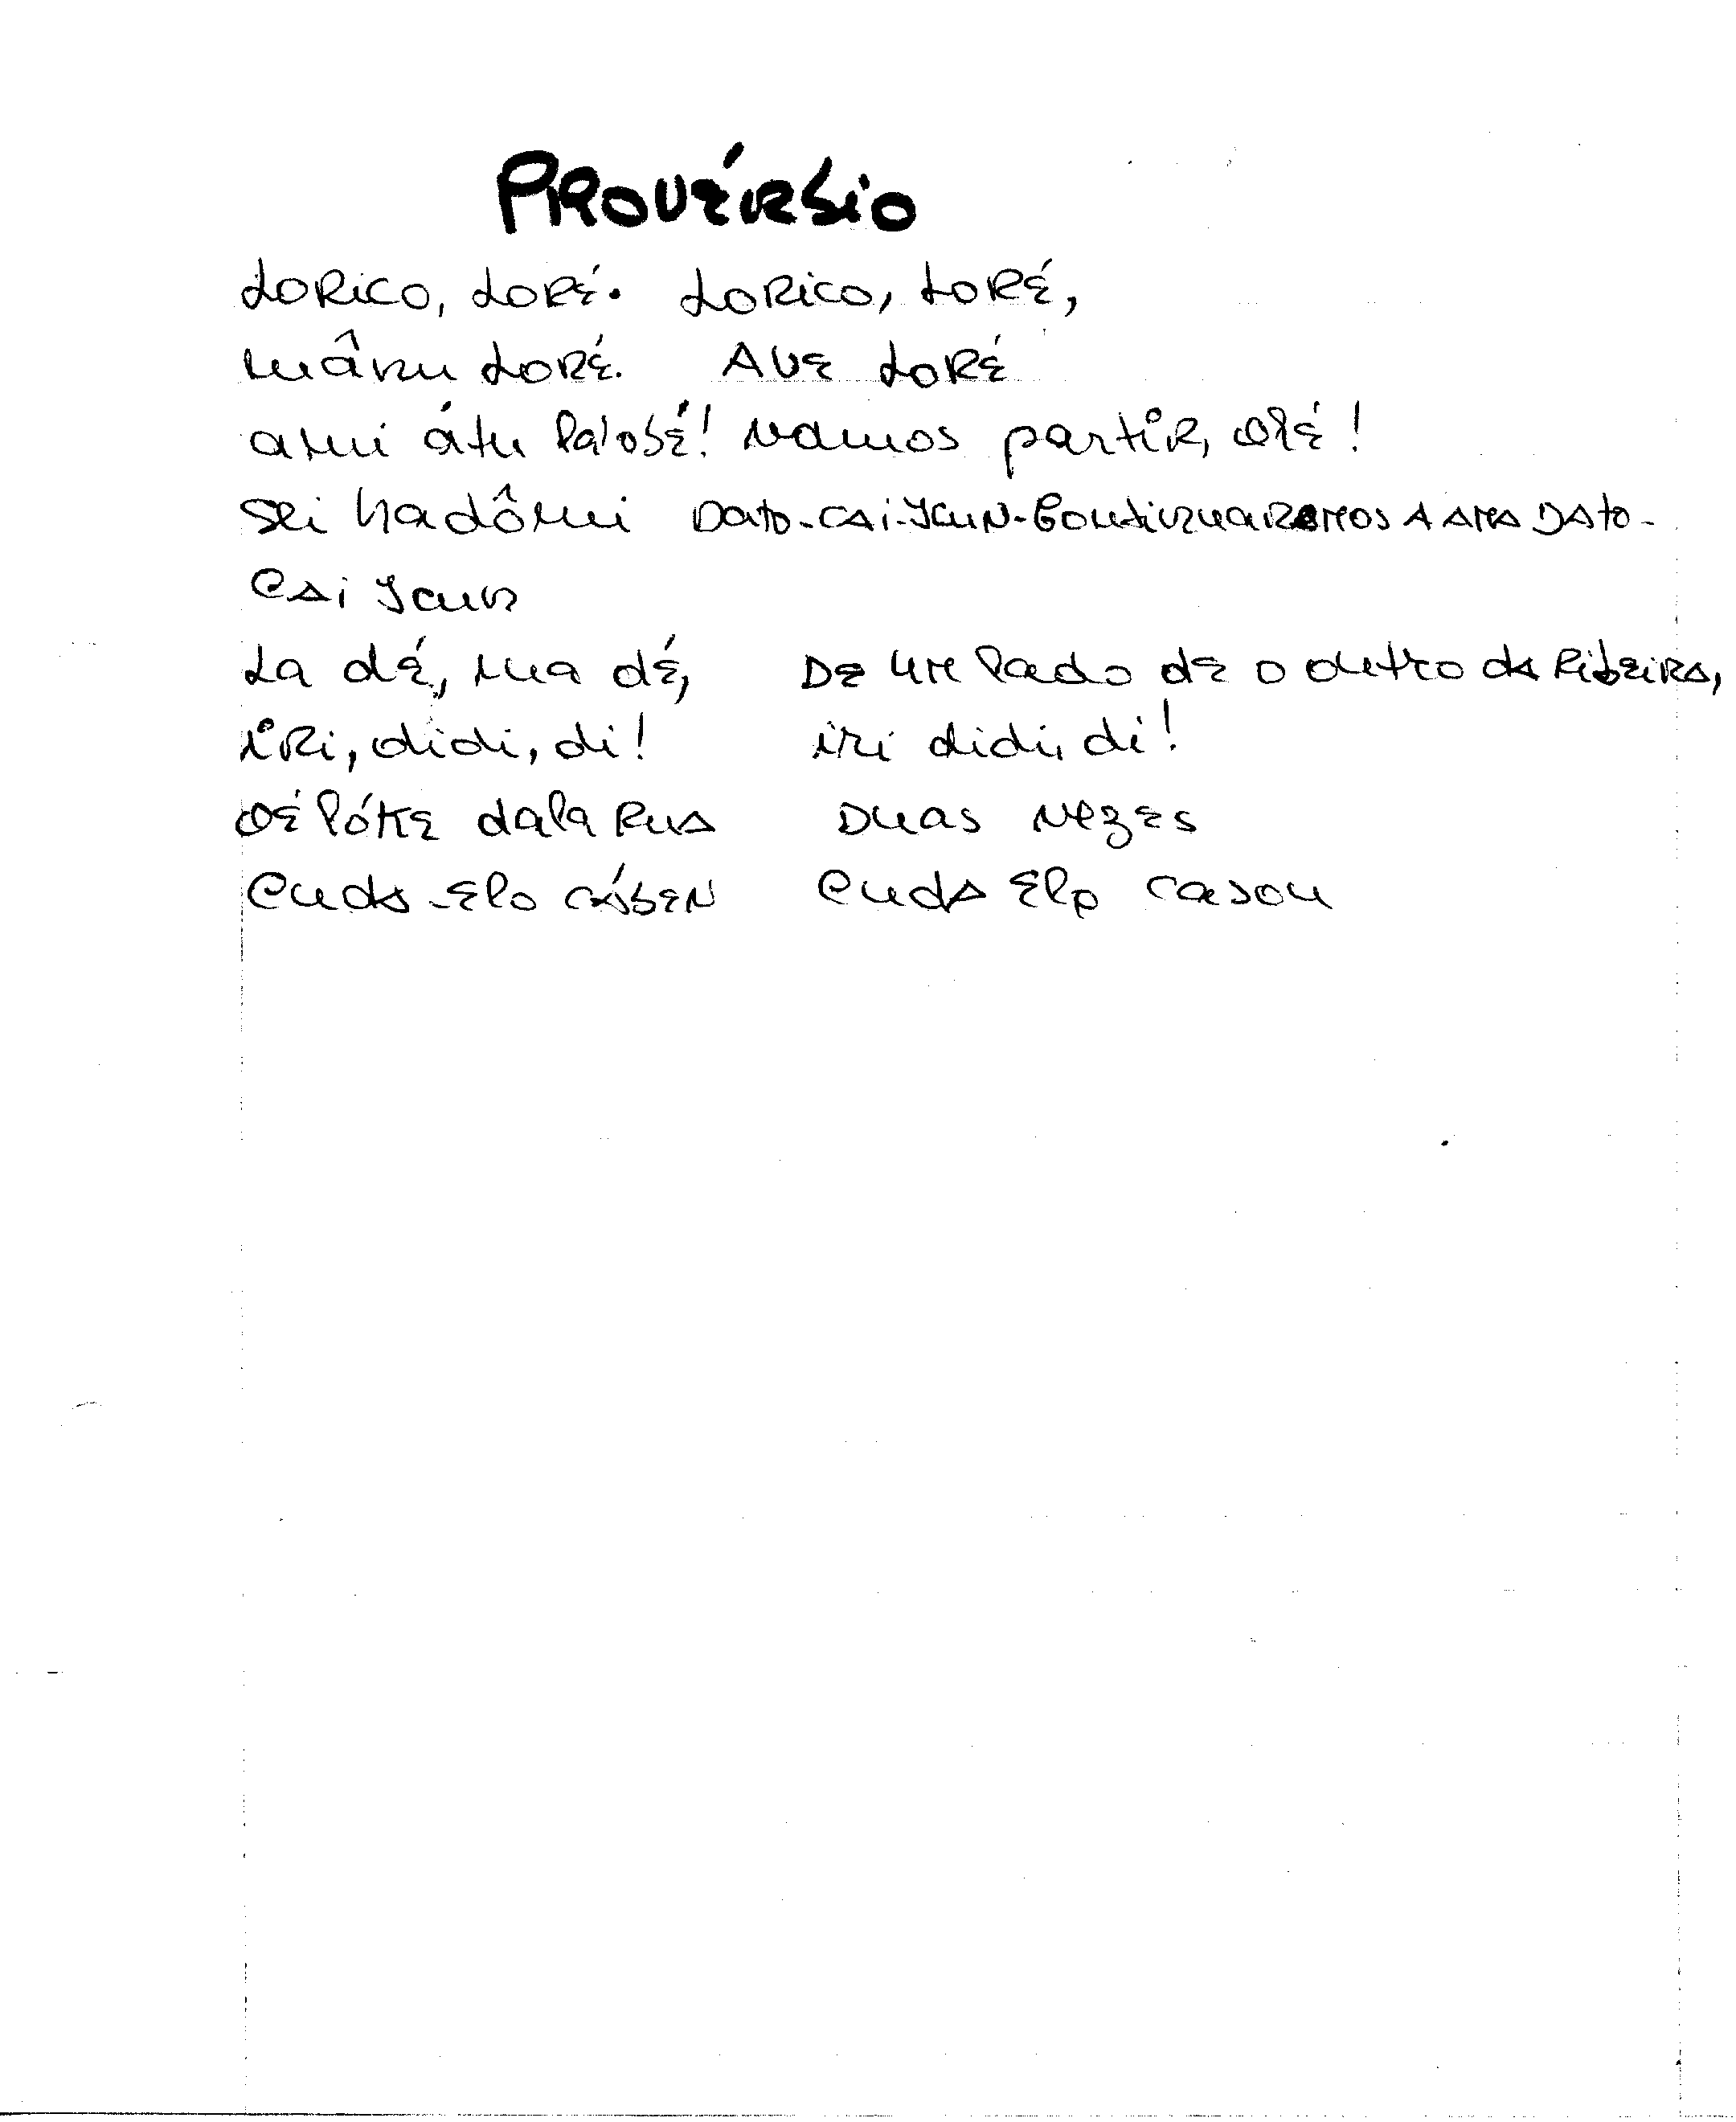 PROVÉRbio
LORico, LORÉ. LORico, LORÉ,
mânu LORÉ. AVE LORÉ
ami átu la'obé! Vamos partir, olé!
sei hadômi Dato-cai-Laun-Continuaremos A AMA DAto-
Cai Laun
La dé, ma dé, DE UM lado dE o outro da RibEiRa,
iRi, didi, di! iri didi, di!
Oé lókE dala Rua Duas VezEs
Cuda-Elo cábEN Cuda Elo casou